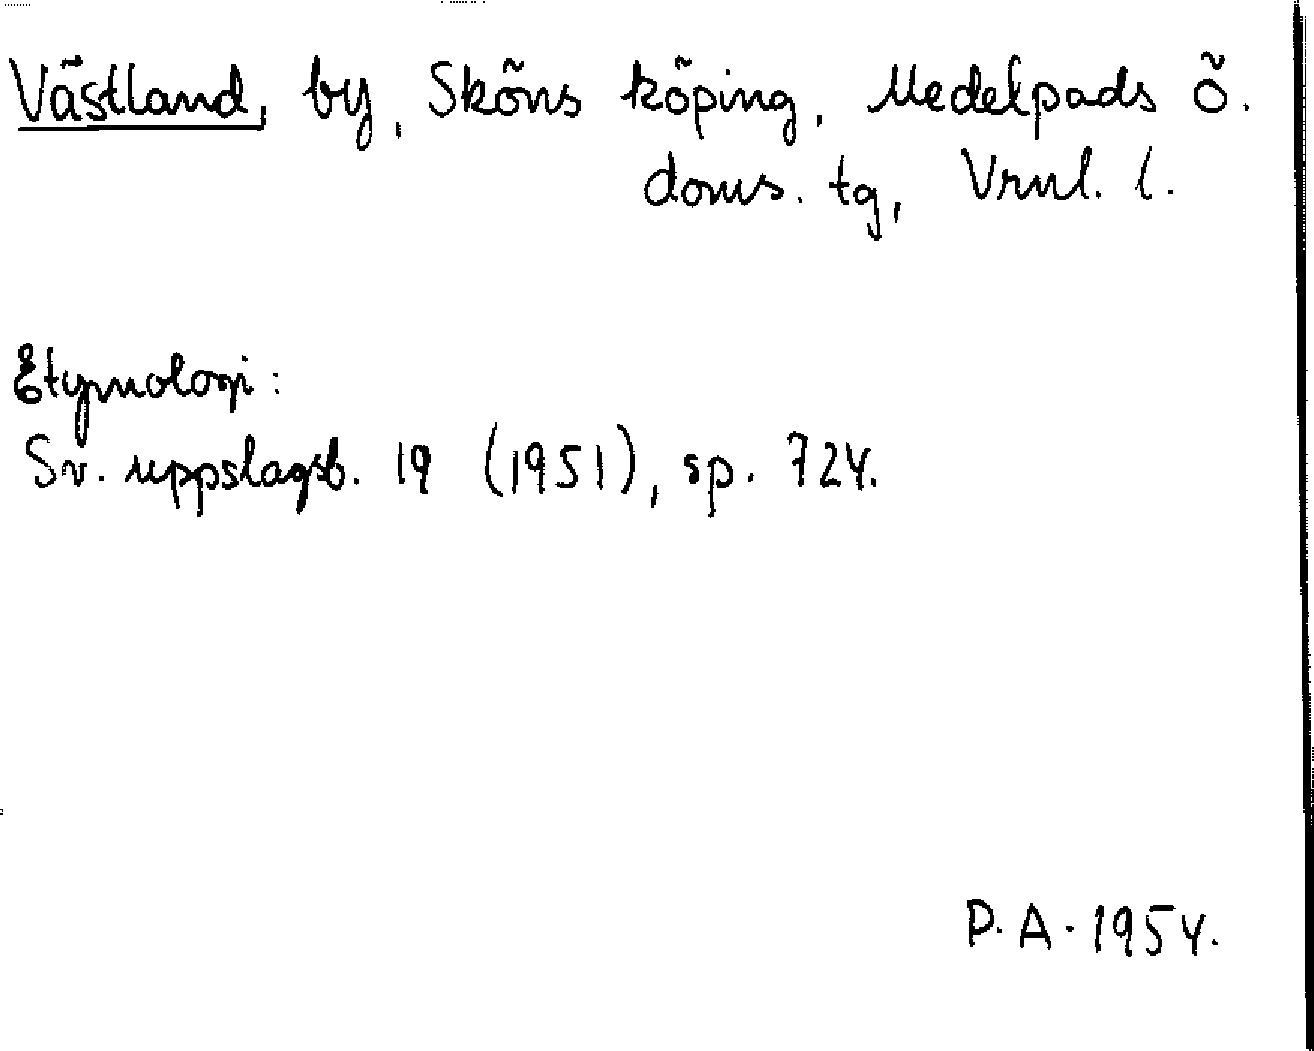 Västland, by, Sköns köping, Medelpads ö.
doms. tg, Vrnl. l.
Etymologi:
Sv. uppslagsb. 19 (1951), sp. 724.
P. A. 1954.